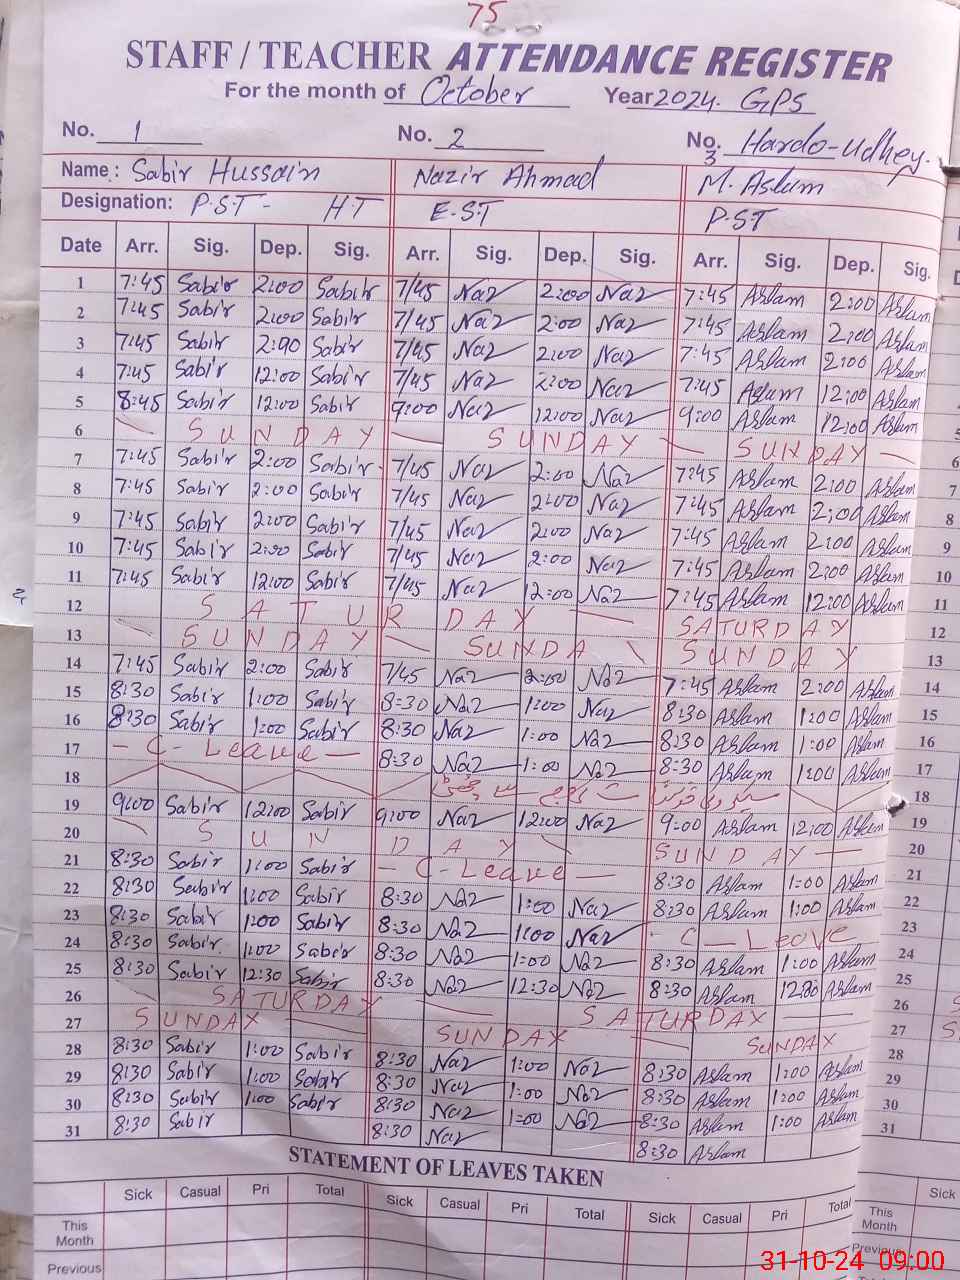 75
STAFF / TEACHER ATTENDANCE REGISTER
For the month of October Year 2024. GPS
No. 1 No. 2 No. 3 Hardo-Udhey.
Name: Sabir Hussain Nazir Ahmad M. Aslam
Designation: P.S.T - H.T E.S.T P.S.T
Date Arr. Sig. Dep. Sig. Arr. Sig. Dep. Sig. Arr. Sig. Dep. Sig.
1 7:45 Sabir 2:00 Sabir 7/45 Naz 2:00 Naz 7:45 Aslam 2:00 Aslam
2 7:45 Sabir 2:00 Sabir 7/45 Naz 2:00 Naz 7:45 Aslam 2:00 Aslam
3 7:45 Sabir 2:00 Sabir 7/45 Naz 2:00 Naz 7:45 Aslam 2:00 Aslam
4 7:45 Sabir 12:00 Sabir 7/45 Naz 2:00 Naz 7:45 Aslam 12:00 Aslam
5 8:45 Sabir 12:00 Sabir 9:00 Naz 12:00 Naz 9:00 Aslam 12:00 Aslam 5
6 SUNDAY SUNDAY SUNDAY 6
7 7:45 Sabir 2:00 Sabir 7/45 Naz 2:00 Naz 7:45 Aslam 2:00 Aslam 7
8 7:45 Sabir 2:00 Sabir 7/45 Naz 2:00 Naz 7:45 Aslam 2:00 Aslam 8
9 7:45 Sabir 2:00 Sabir 7/45 Naz 2:00 Naz 7:45 Aslam 2:00 Aslam 9
10 7:45 Sabir 2:00 Sabir 7/45 Naz 2:00 Naz 7:45 Aslam 2:00 Aslam 10
11 7:45 Sabir 12:00 Sabir 7/45 Naz 12:00 Naz 7:45 Aslam 12:00 Aslam 11
12 SATURDAY SATURDAY 12
13 SUNDAY SUNDA SUNDAY 13
14 7:45 Sabir 2:00 Sabir 7/45 Naz 2:00 Naz 7:45 Aslam 2:00 Aslam 14
15 8:30 Sabir 1:00 Sabir 8:30 Naz 1:00 Naz 8:30 Aslam 1:00 Aslam 15
16 8:30 Sabir 1:00 Sabir 8:30 Naz 1:00 Naz 8:30 Aslam 1:00 Aslam 16
17 - C - Leave - 8:30 Naz 1:00 Naz 8:30 Aslam 1:00 Aslam 17
18 18
19 9:00 Sabir 12:00 Sabir 9:00 Naz 12:00 Naz 9:00 Aslam 12:00 Aslam 19
20 SUNDAY SUNDAY 20
21 8:30 Sabir 1:00 Sabir - C - Leave - 8:30 Aslam 1:00 Aslam 21
22 8:30 Sabir 1:00 Sabir 8:30 Naz 1:00 Naz 8:30 Aslam 1:00 Aslam 22
23 8:30 Sabir 1:00 Sabir 8:30 Naz 1:00 Naz - C - Leave 23
24 8:30 Sabir 1:00 Sabir 8:30 Naz 1:00 Naz 8:30 Aslam 1:00 Aslam 24
25 8:30 Sabir 12:30 Sabir 8:30 Naz 12:30 Naz 8:30 Aslam 12:30 Aslam 25
26 SATURDAY SATURDAY 26
27 SUNDAY SUNDAY SUNDAY 27
28 8:30 Sabir 1:00 Sabir 8:30 Naz 1:00 Naz 8:30 Aslam 1:00 Aslam 28
29 8:30 Sabir 1:00 Sabir 8:30 Naz 1:00 Naz 8:30 Aslam 1:00 Aslam 29
30 8:30 Sabir 1:00 Sabir 8:30 Naz 1:00 Naz 8:30 Aslam 1:00 Aslam 30
31 8:30 Sabir 8:30 Naz 8:30 Aslam 31
STATEMENT OF LEAVES TAKEN
Sick Casual Pri Total Sick Casual Pri Total Sick Casual Pri Total Sick
This Month This Month
Previous Previous
31-10-24 09:00